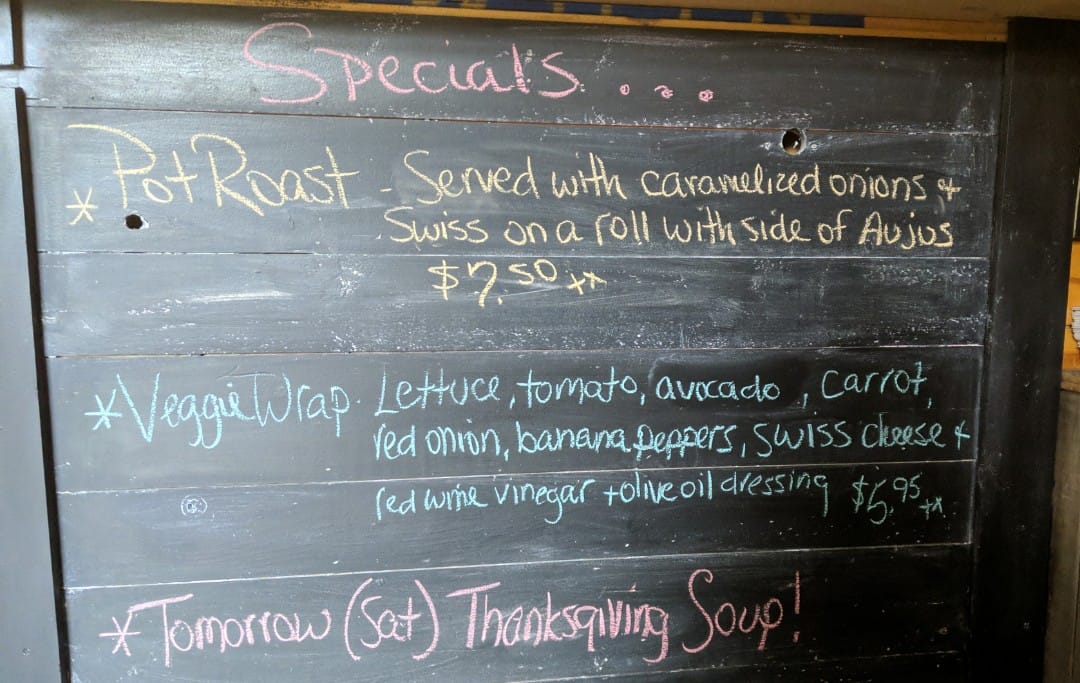 Specials....
* Pot Roast - Served with caramelized onions +
Swiss on a roll with side of Aujus
$7.50 +x
* Veggie Wrap. Lettuce, tomato, avocado, carrot,
red onion, banana peppers, swiss cheese +
red wine vinegar + olive oil dressing $6.95 +x
* Tomorrow (Sat) Thanksgiving Soup!